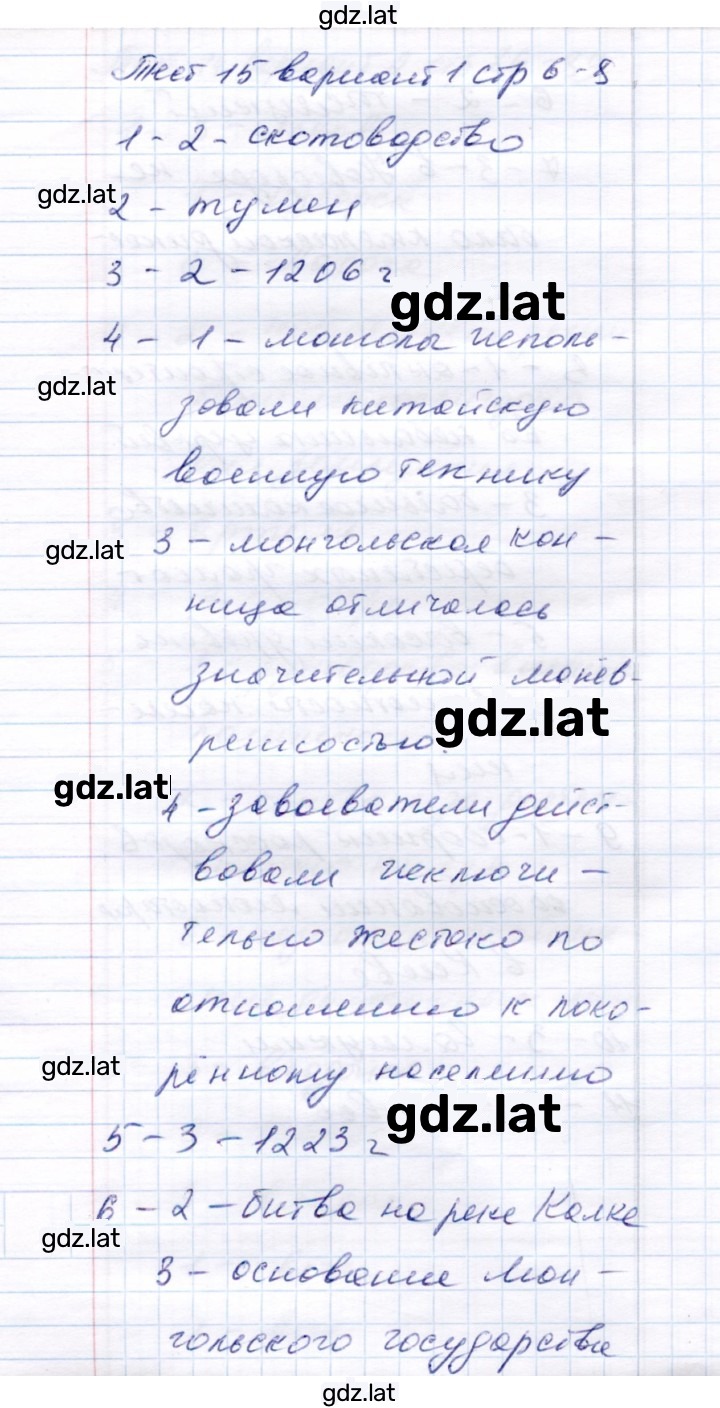 gdz.lat
Тест 15 вариант 1 стр 6-8
1 - 2 - скотоводство
gdz.lat
2 - тумен
3 - 2 - 1206 г
gdz.lat
4 - 1 - монголы исполь-
gdz.lat
зовали китайскую
военную технику
gdz.lat
3 - монгольская кон-
ница отличалась
значительной манёв-
gdz.lat
ренностью.
gdz.lat
4 - завоеватели дейст-
вовали исключи-
тельно жестоко по
отношению к поко-
gdz.lat
рённому населению
gdz.lat
5 - 3 - 1223 г
6 - 2 - битва на реке Калке
gdz.lat
3 - основание Мон-
гольского государства
gdz.lat